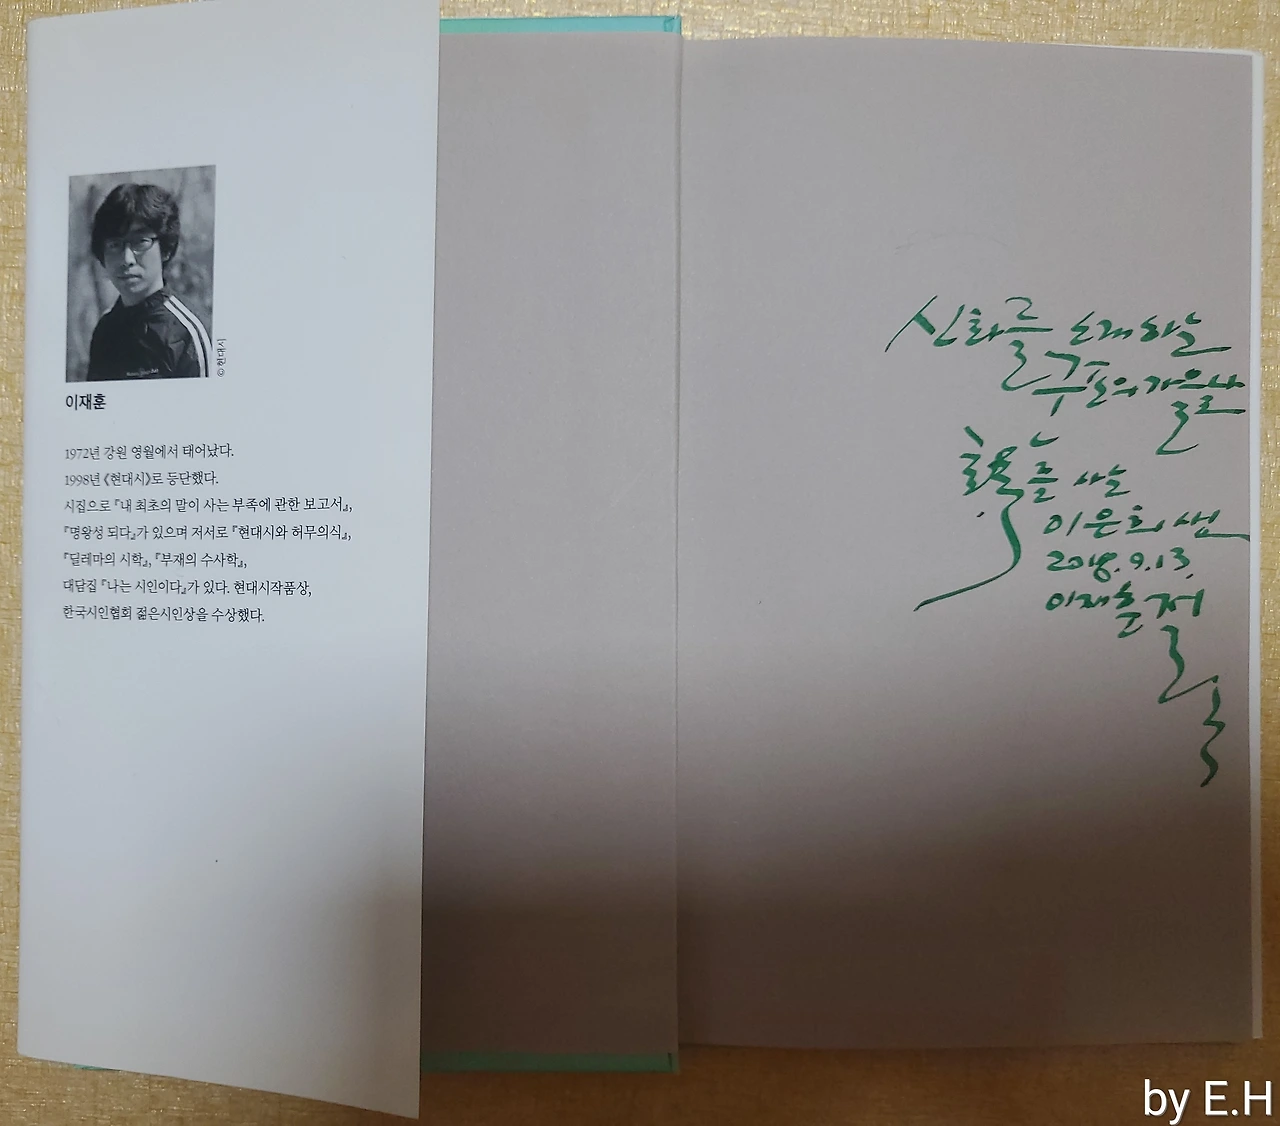 ©현대시
이재훈
1972년 강원 영월에서 태어났다.
1998년 《현대시》로 등단했다.
시집으로 『내 최초의 말이 사는 부족에 관한 보고서』,
『명왕성 되다』가 있으며 저서로 『현대시와 허무의식』,
『딜레마의 시학』, 『부재의 수사학』,
대담집 『나는 시인이다』가 있다. 현대시작품상,
한국시인협회 젊은시인상을 수상했다.
신화를 노래하는
군포의 가을날
사는
이은희 샘
2018. 9. 13.
이재훈
by E.H